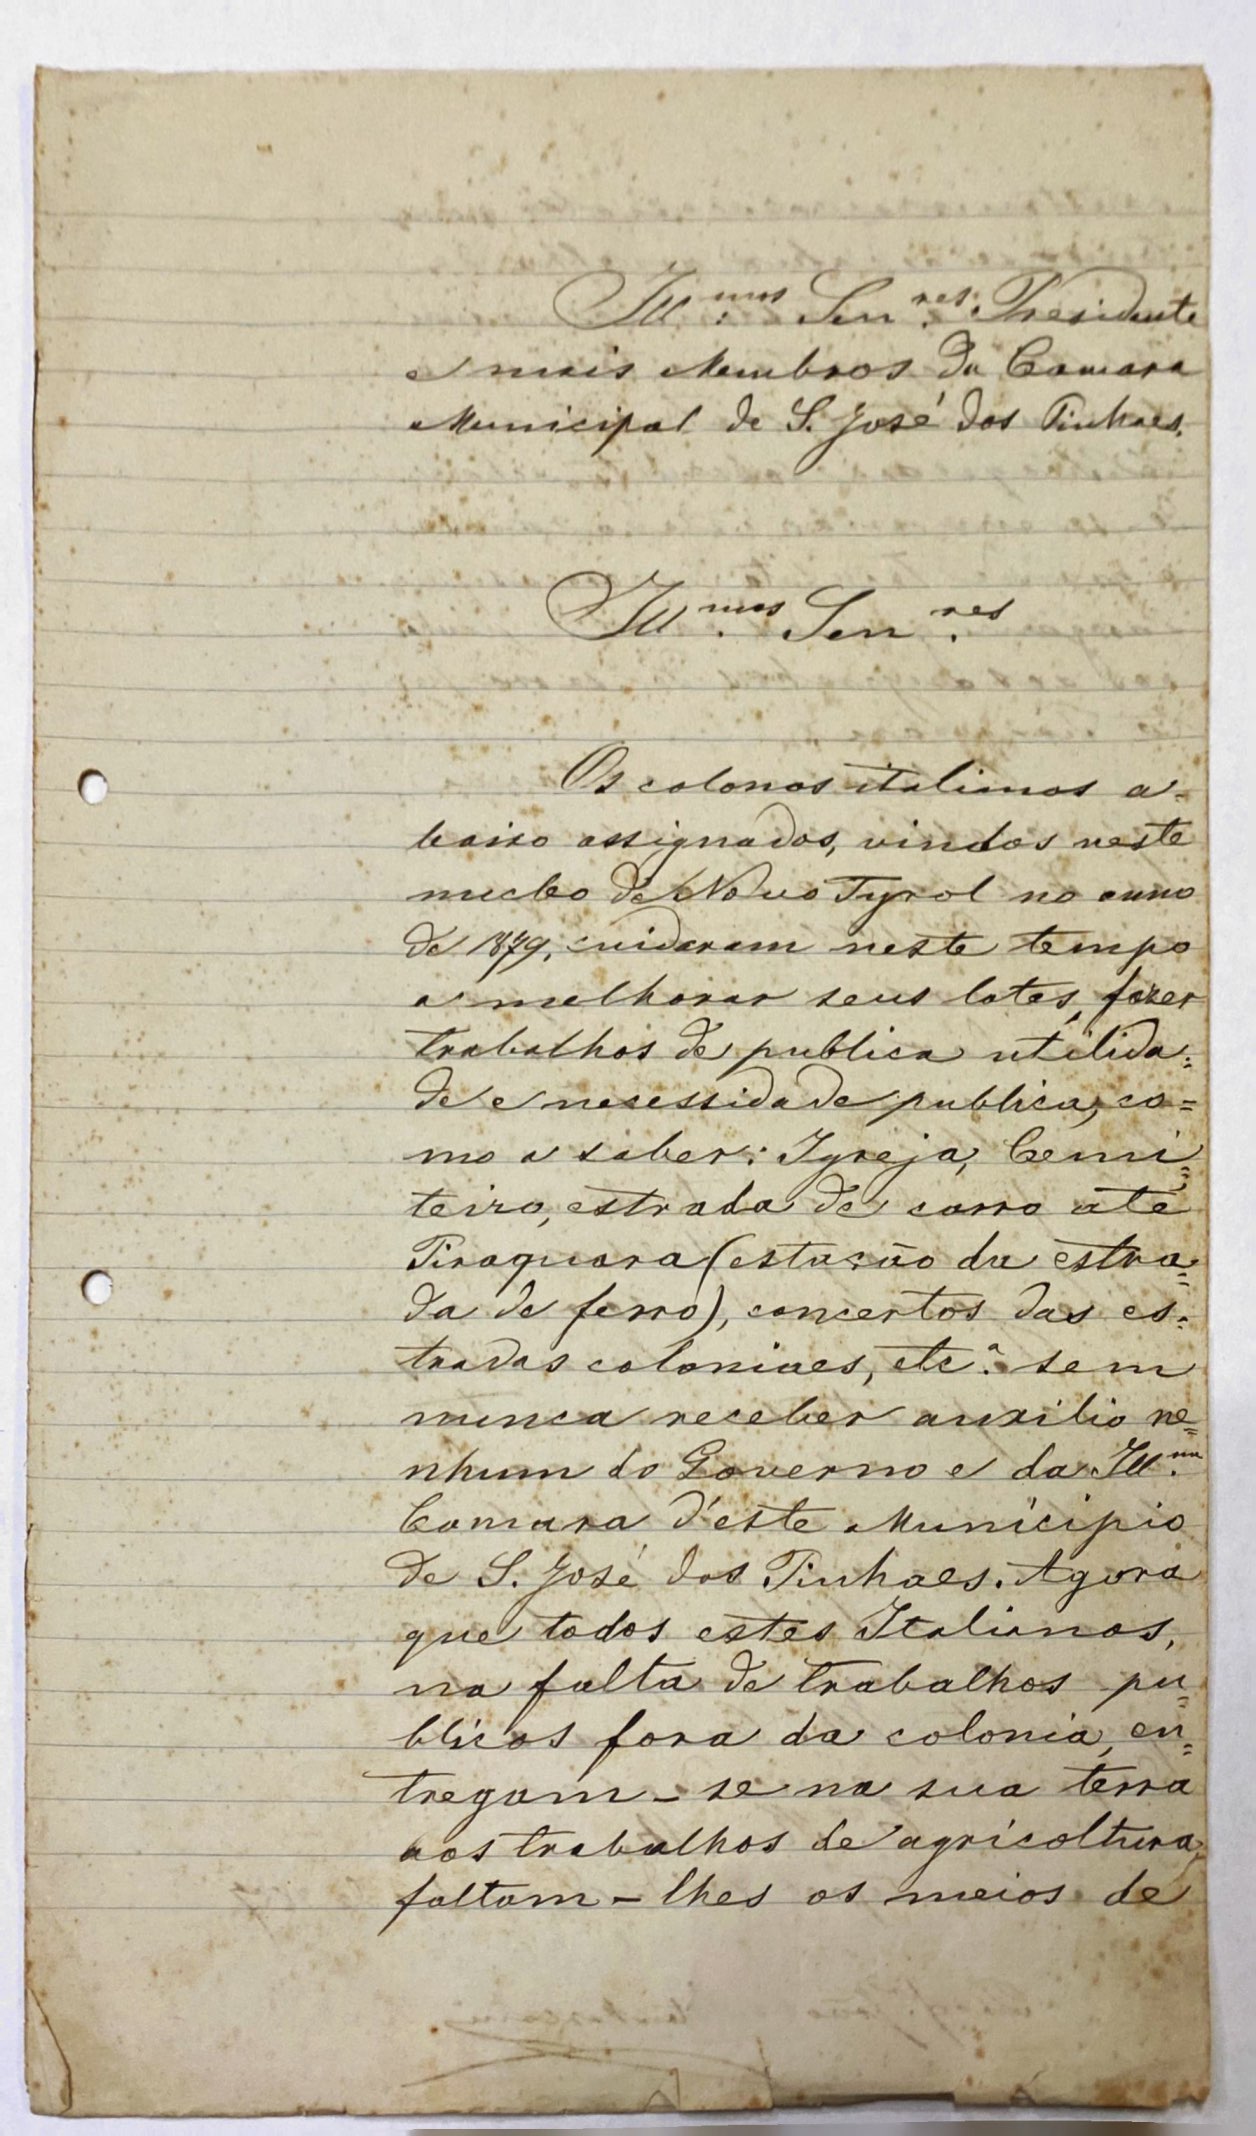 Ill.mos Sen.res Presidente
e mais Membros da Camara
Municipal de S. José dos Pinhaes.
Ill.mos Sen.res
Os colonos italianos a-
baixo assignados, vindos neste
nucleo de Novo Tyrol no anno
de 1879, cuidaram neste tempo
a melhorar seus lotes, fazer
trabalhos de publica utilida=
de e necessidade publica, co=
mo a saber: Igreja, Cemi=
teiro, estrada de carro até
Piraquara (estação da estra=
da de ferro), concertos das es=
tradas coloniaes, etc.ª sem
nunca receber auxilio ne=
nhum do Governo e da Ill.ma
Camara d'este Municipio
de S. José dos Pinhaes. Agora
que todos estes Italianos,
na falta de trabalhos pu=
blicos fora da colonia, en=
tregam-se na sua terra
aos trabalhos de agricoltura,
faltam-lhes os meios de